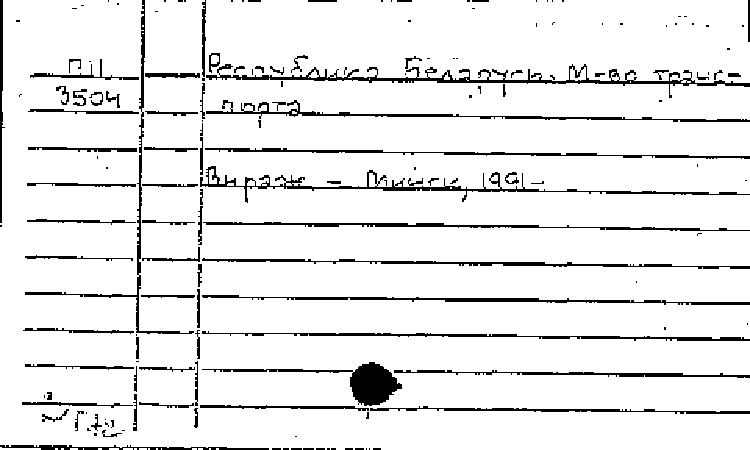 П11 Республика Беларусь. М-во транс-
3504 порта
Вираж – Минск, 1991-